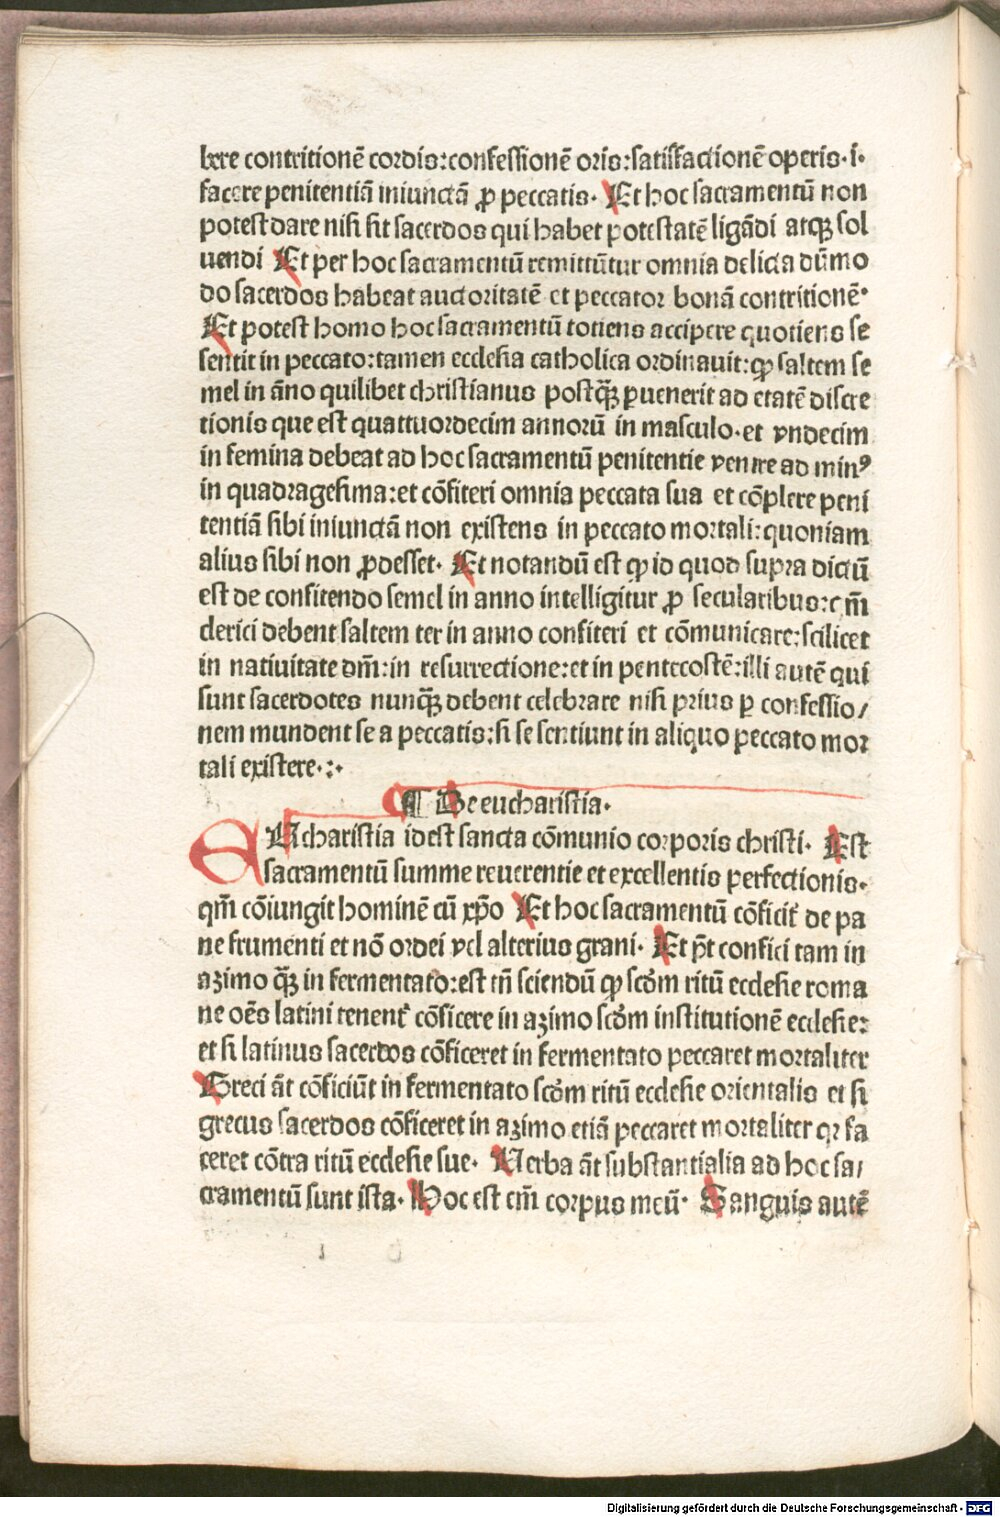 bere contritionē cordis:confessionē oris:satisfactionē operis·i·
facere penitentiā iniunctā ꝓ peccatis· Et hoc sacramentū non
potest dare nisi sit sacerdos qui habet potestatē ligādi atqꝫ sol
uendi Et per hoc sacramentū remittūtur omnia delicta dūmo
do sacerdos habeat auctoritatē et peccator bonā contritionē·
Et potest homo hoc sacramentū totiens accipere quotiens se
sentit in peccato:tamen ecclesia catholica ordinauit:ꝙ saltem se
mel in āno quilibet christianus postqꝫ̄ ꝑuenerit ad etatē discre
tionis que est quattuordecim annorū in masculo·et vndecim
in femina debeat ad hoc sacramentū penitentie venire ad minꝰ
in quadragesima:et cōfiteri omnia peccata sua et cōplere peni
tentiā sibi iniunctā non existens in peccato mortali:quoniam
alius sibi non ꝓdesset· Et notandū est ꝙ id quod supra dictū
est de confitendo semel in anno intelligitur ꝓ secularibus:cm̄
clerici debent saltem ter in anno confiteri et cōmunicare:scilicet
in natiuitate dm̄:in resurrectione:et in pentecostē:illi autē qui
sunt sacerdotes nunqꝫ̄ debent celebrare nisi prius ꝑ confessio/
nem mundent se a peccatis:si se sentiunt in aliquo peccato mor
tali existere·:·
¶ De eucharistia·
EUcharistia idest sancta cōmunio corporis christi· Est
sacramentū summe reuerentie et excellentis perfectionis·
qm̄ cōiungit hominē cū xp̄o Et hoc sacramentū cōficit̄ de pa
ne frumenti et nō ordei vel alterius grani· Et pt̄ confici tam in
azimo qꝫ̄ in fermentato:est tn̄ sciendū ꝙ scd̄m ritū ecclesie roma
ne oēs latini tenent̄ cōficere in azimo scd̄m institutionē ecclesie:
et si latinus sacerdos cōficeret in fermentato peccaret mortaliter
Greci āt cōficiūt in fermentato scd̄m ritū ecclesie orientalis et si
grecus sacerdos cōficeret in azimo etiā peccaret mortaliter qꝛ fa
ceret cōtra ritū ecclesie sue· Uerba āt substantialia ad hoc sa/
cramentū sunt ista· Hoc est em̄ corpus meū· Sanguis autē
Digitalisierung gefördert durch die Deutsche Forschungsgemeinschaft - DFG